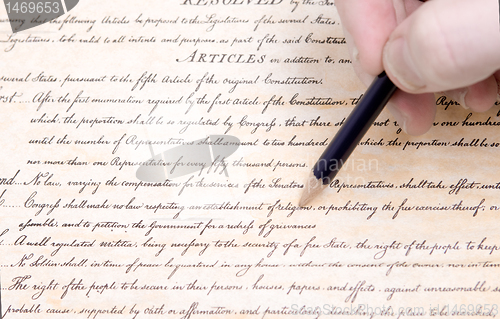 1469653
RESOLVED by the
the following Articles be proposed to the Legislatures of the several States,
Legislatures, to be valid to all intents and purposes, as part of the said Constitut
ARTICLES in addition to, an
several States, pursuant to the fifth Article of the original Constitution.
After the first enumeration required by the first Article of the Constitution, th
which, the proportion shall be so regulated by Congress, that there shall not one hundred
until the number of Representatives shall amount to two hundred, the proportion shall be so
nor more than one Representative for every fifty thousand persons.
No law, varying the compensation for the services of the Senators Representatives, shall take effect, until
Congress shall make no law respecting an establishment of religion, or prohibiting the free exercise thereof, or
assemble, and to petition the Government for a redress of grievances
A well regulated militia, being necessary to the security of a free State, the right of the people to keep
No Soldier shall, in time of peace be quartered in any house, without the consent of the owner, nor in time
The right of the people to be secure in their persons, houses, papers, and effects, against unreasonable se
probable cause, supported by oath or affirmation, and particularly describing the place to be searched,
© www.stockfresh.com